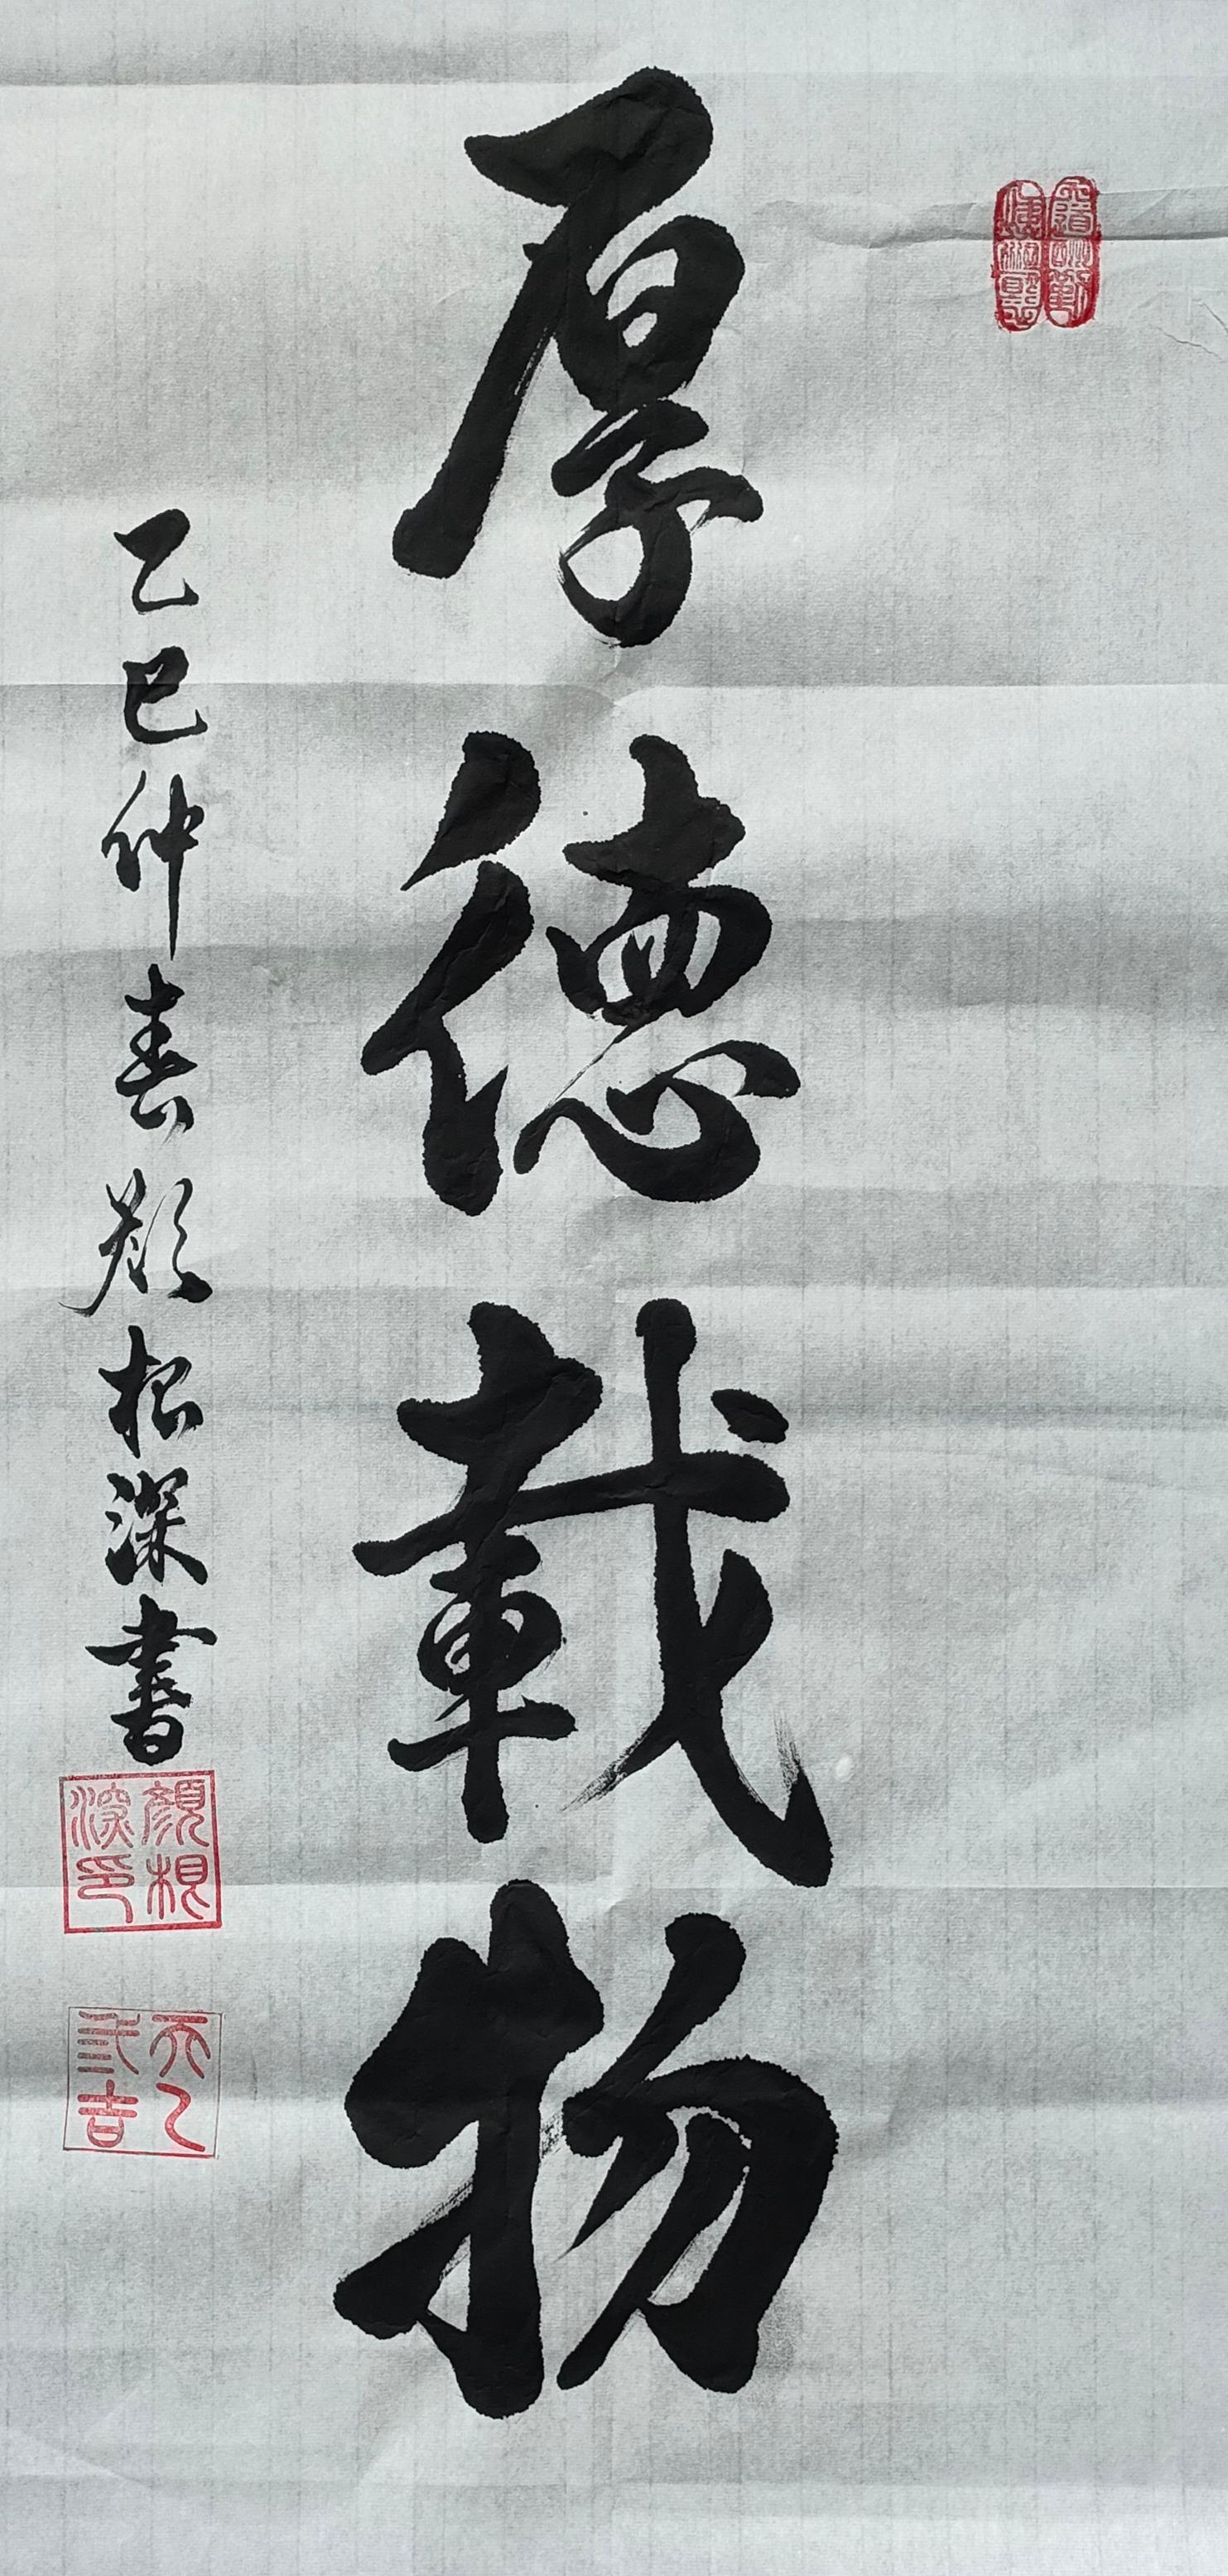 厚德載物
乙巳仲春顏根深書
顏根深印